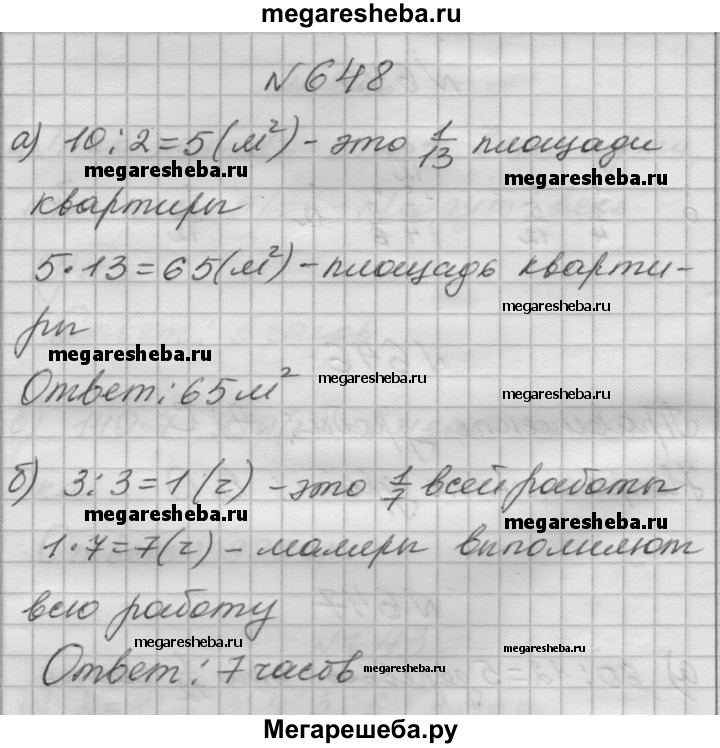 megaresheba.ru
№648
а) 10:2=5(м²) - это 1/13 площади
megaresheba.ru megaresheba.ru
квартиры
5·13=65(м²) - площадь кварти-
megaresheba.ru
ры
megaresheba.ru
megaresheba.ru
Ответ: 65м²
megaresheba.ru
б) 3:3=1(ч) - это 1/7 всей работы
megaresheba.ru megaresheba.ru
1·7=7(ч) - маляры выполняют
всю работу
megaresheba.ru megaresheba.ru
Ответ: 7 часов megaresheba.ru
Мегарешеба.ру